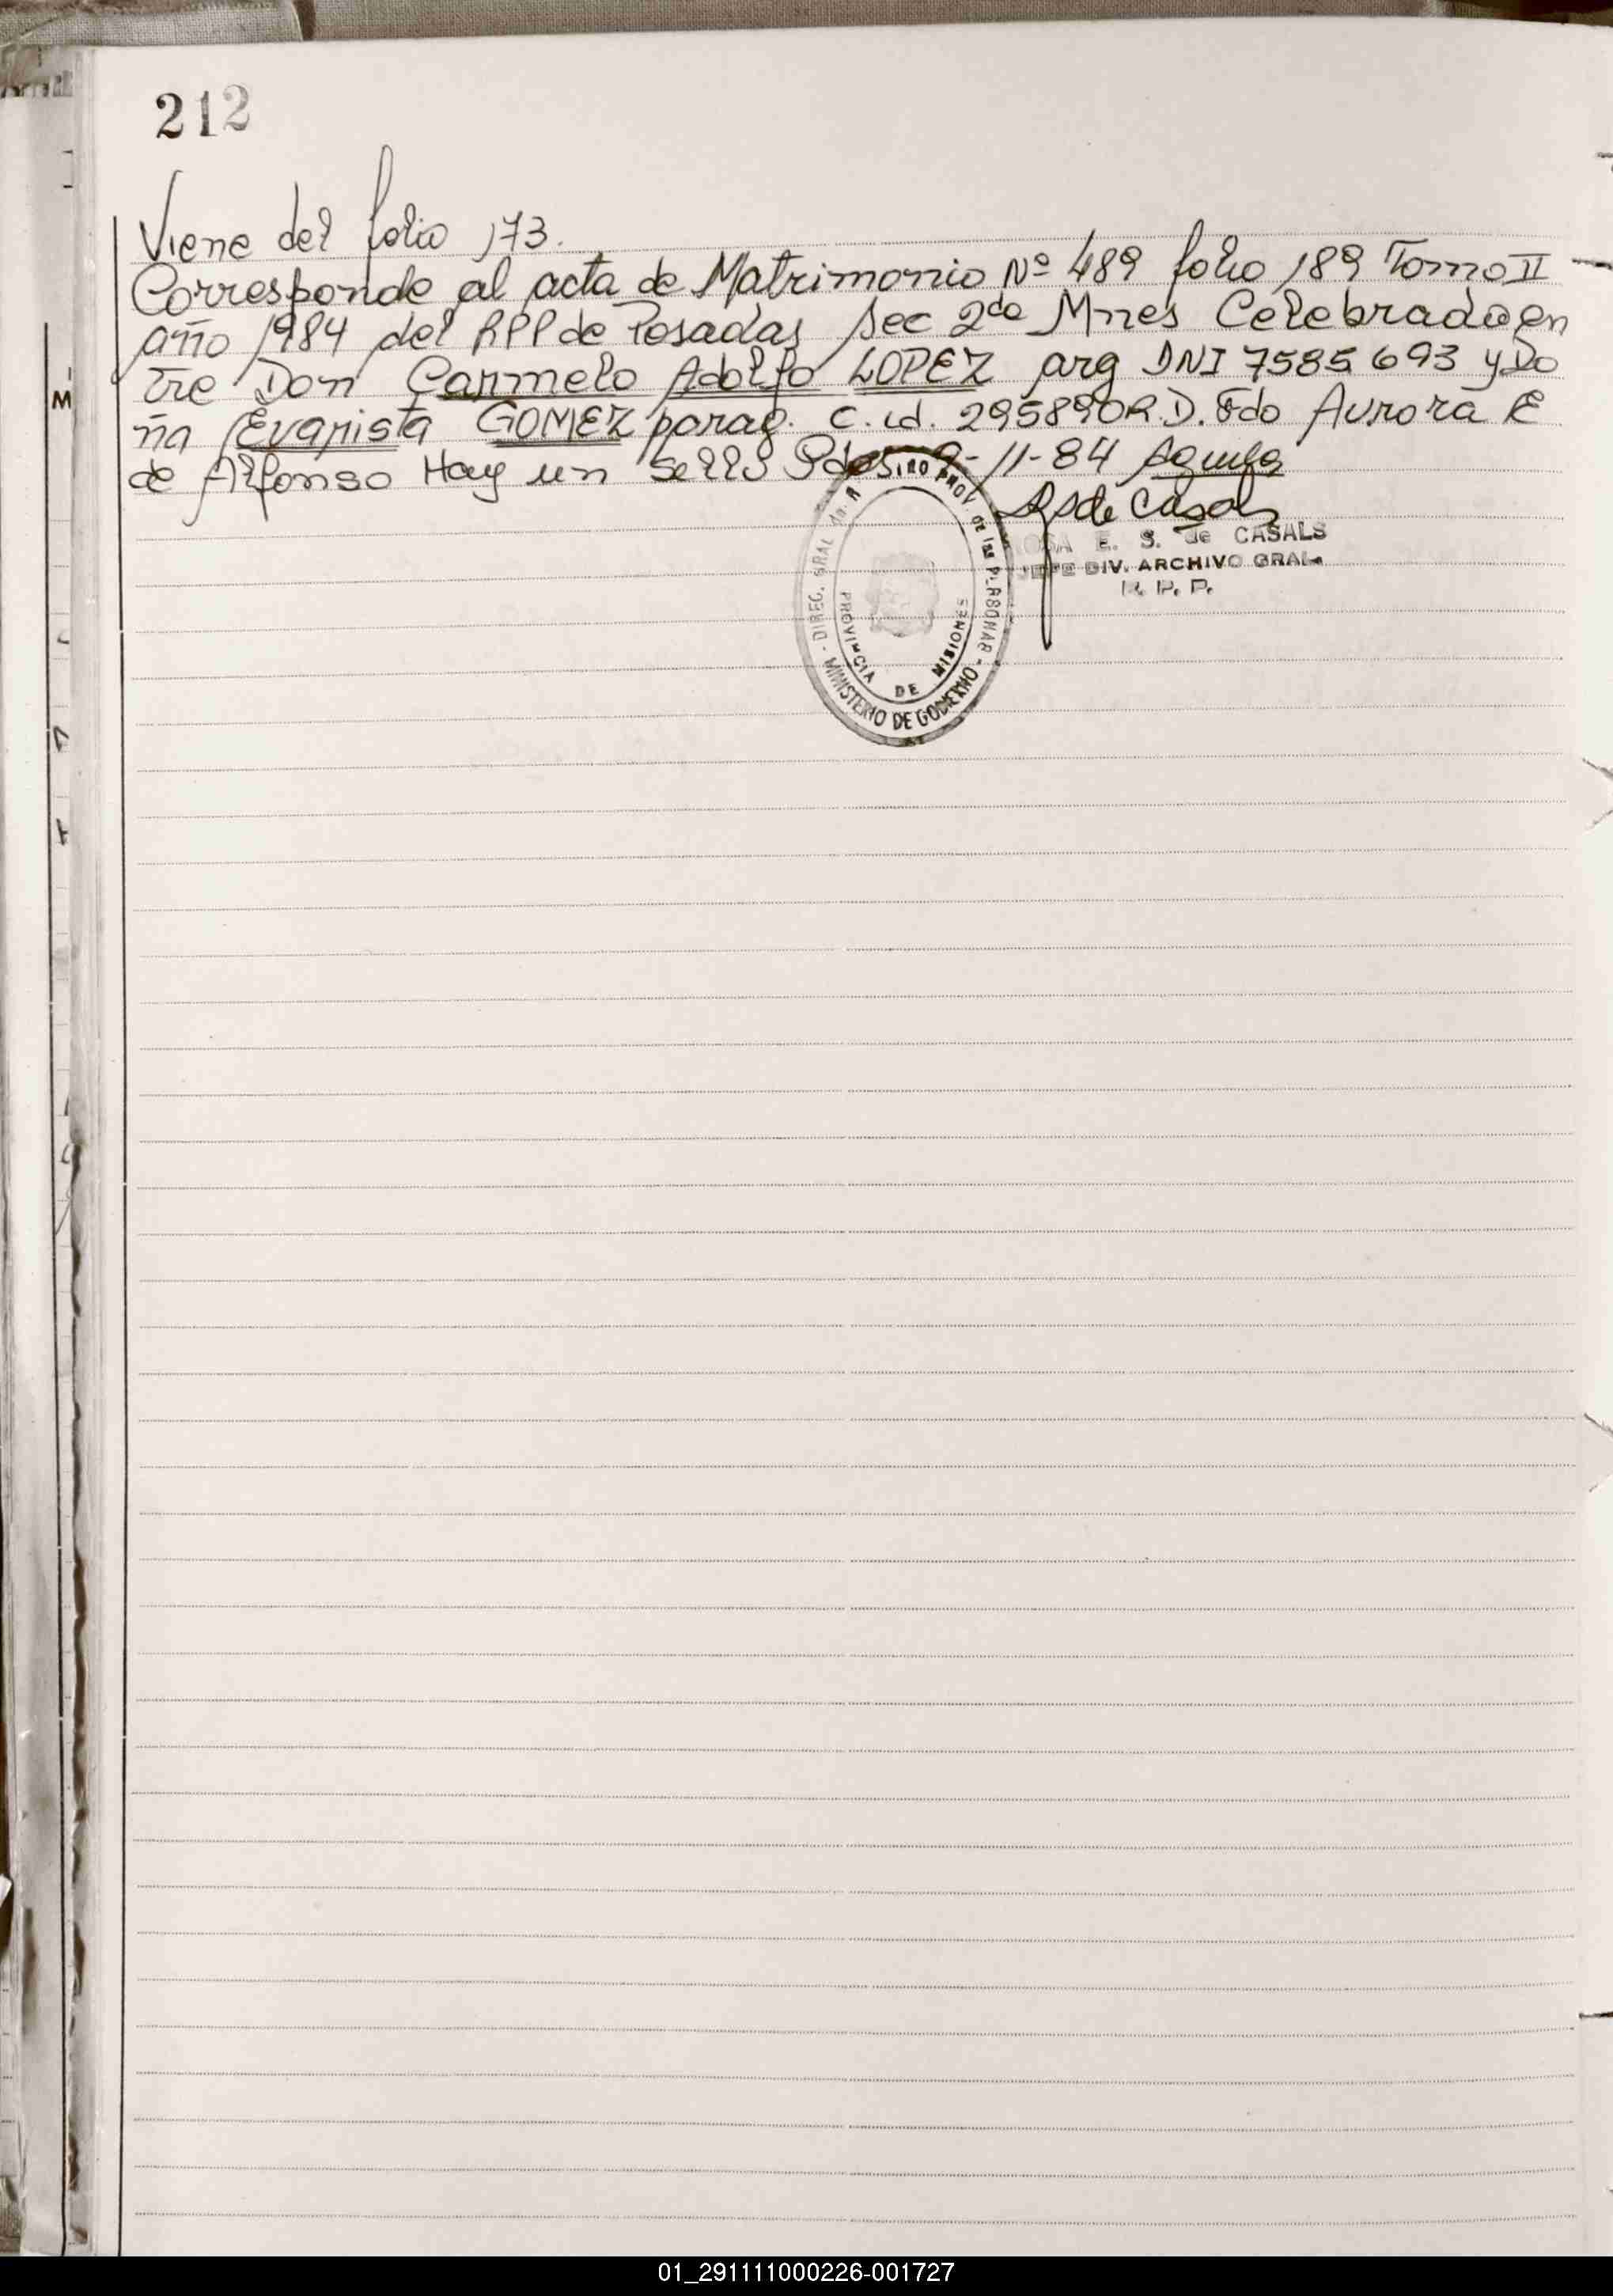 212
Viene del folio 173.
Corresponde al acta de Matrimonio Nº 489 folio 189 Tomo II
año 1984 del RPP de Posadas Sec 2da Mnes Celebrado en
tre Don Carmelo Adolfo LOPEZ arg DNI 7585693 y Do
ña Evarista GOMEZ parag. C. id. 295890 R.D. Fdo Aurora E
de Alfonso Hay un Sello Pdas 9-11-84
de Casals
E. S. de CASALS
JEFE DIV. ARCHIVO GRAL.
R. P. P.
DIREC. GRAL PROV. DE las PERSONAS
MINISTERIO DE GOBIERNO
PROVINCIA DE MISIONES
M
01_291111000226-001727